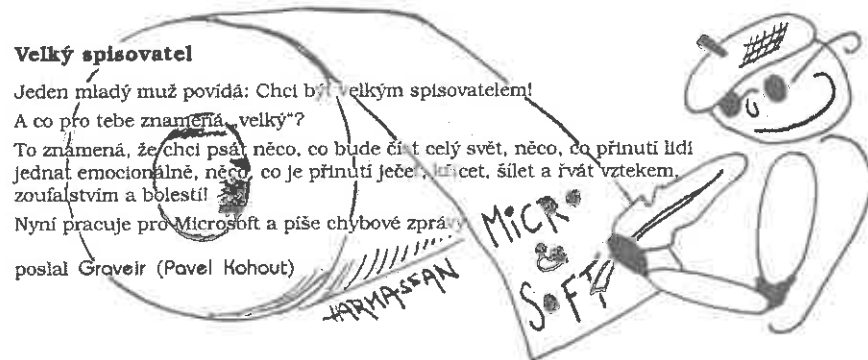 Velký spisovatel
Jeden mladý muž povídá: Chci být velkým spisovatelem!
A co pro tebe znamená „velký“?
To znamená, že chci psát něco, co bude číst celý svět, něco, co přinutí lidi
jednat emocionálně, něco, co je přinutí ječet, křičet, šílet a řvát vztekem,
zoufalstvím a bolestí!
Nyní pracuje pro Microsoft a píše chybové zprávy
poslal Graveir (Pavel Kohout)
MICRO
SOFT
HARMASAN